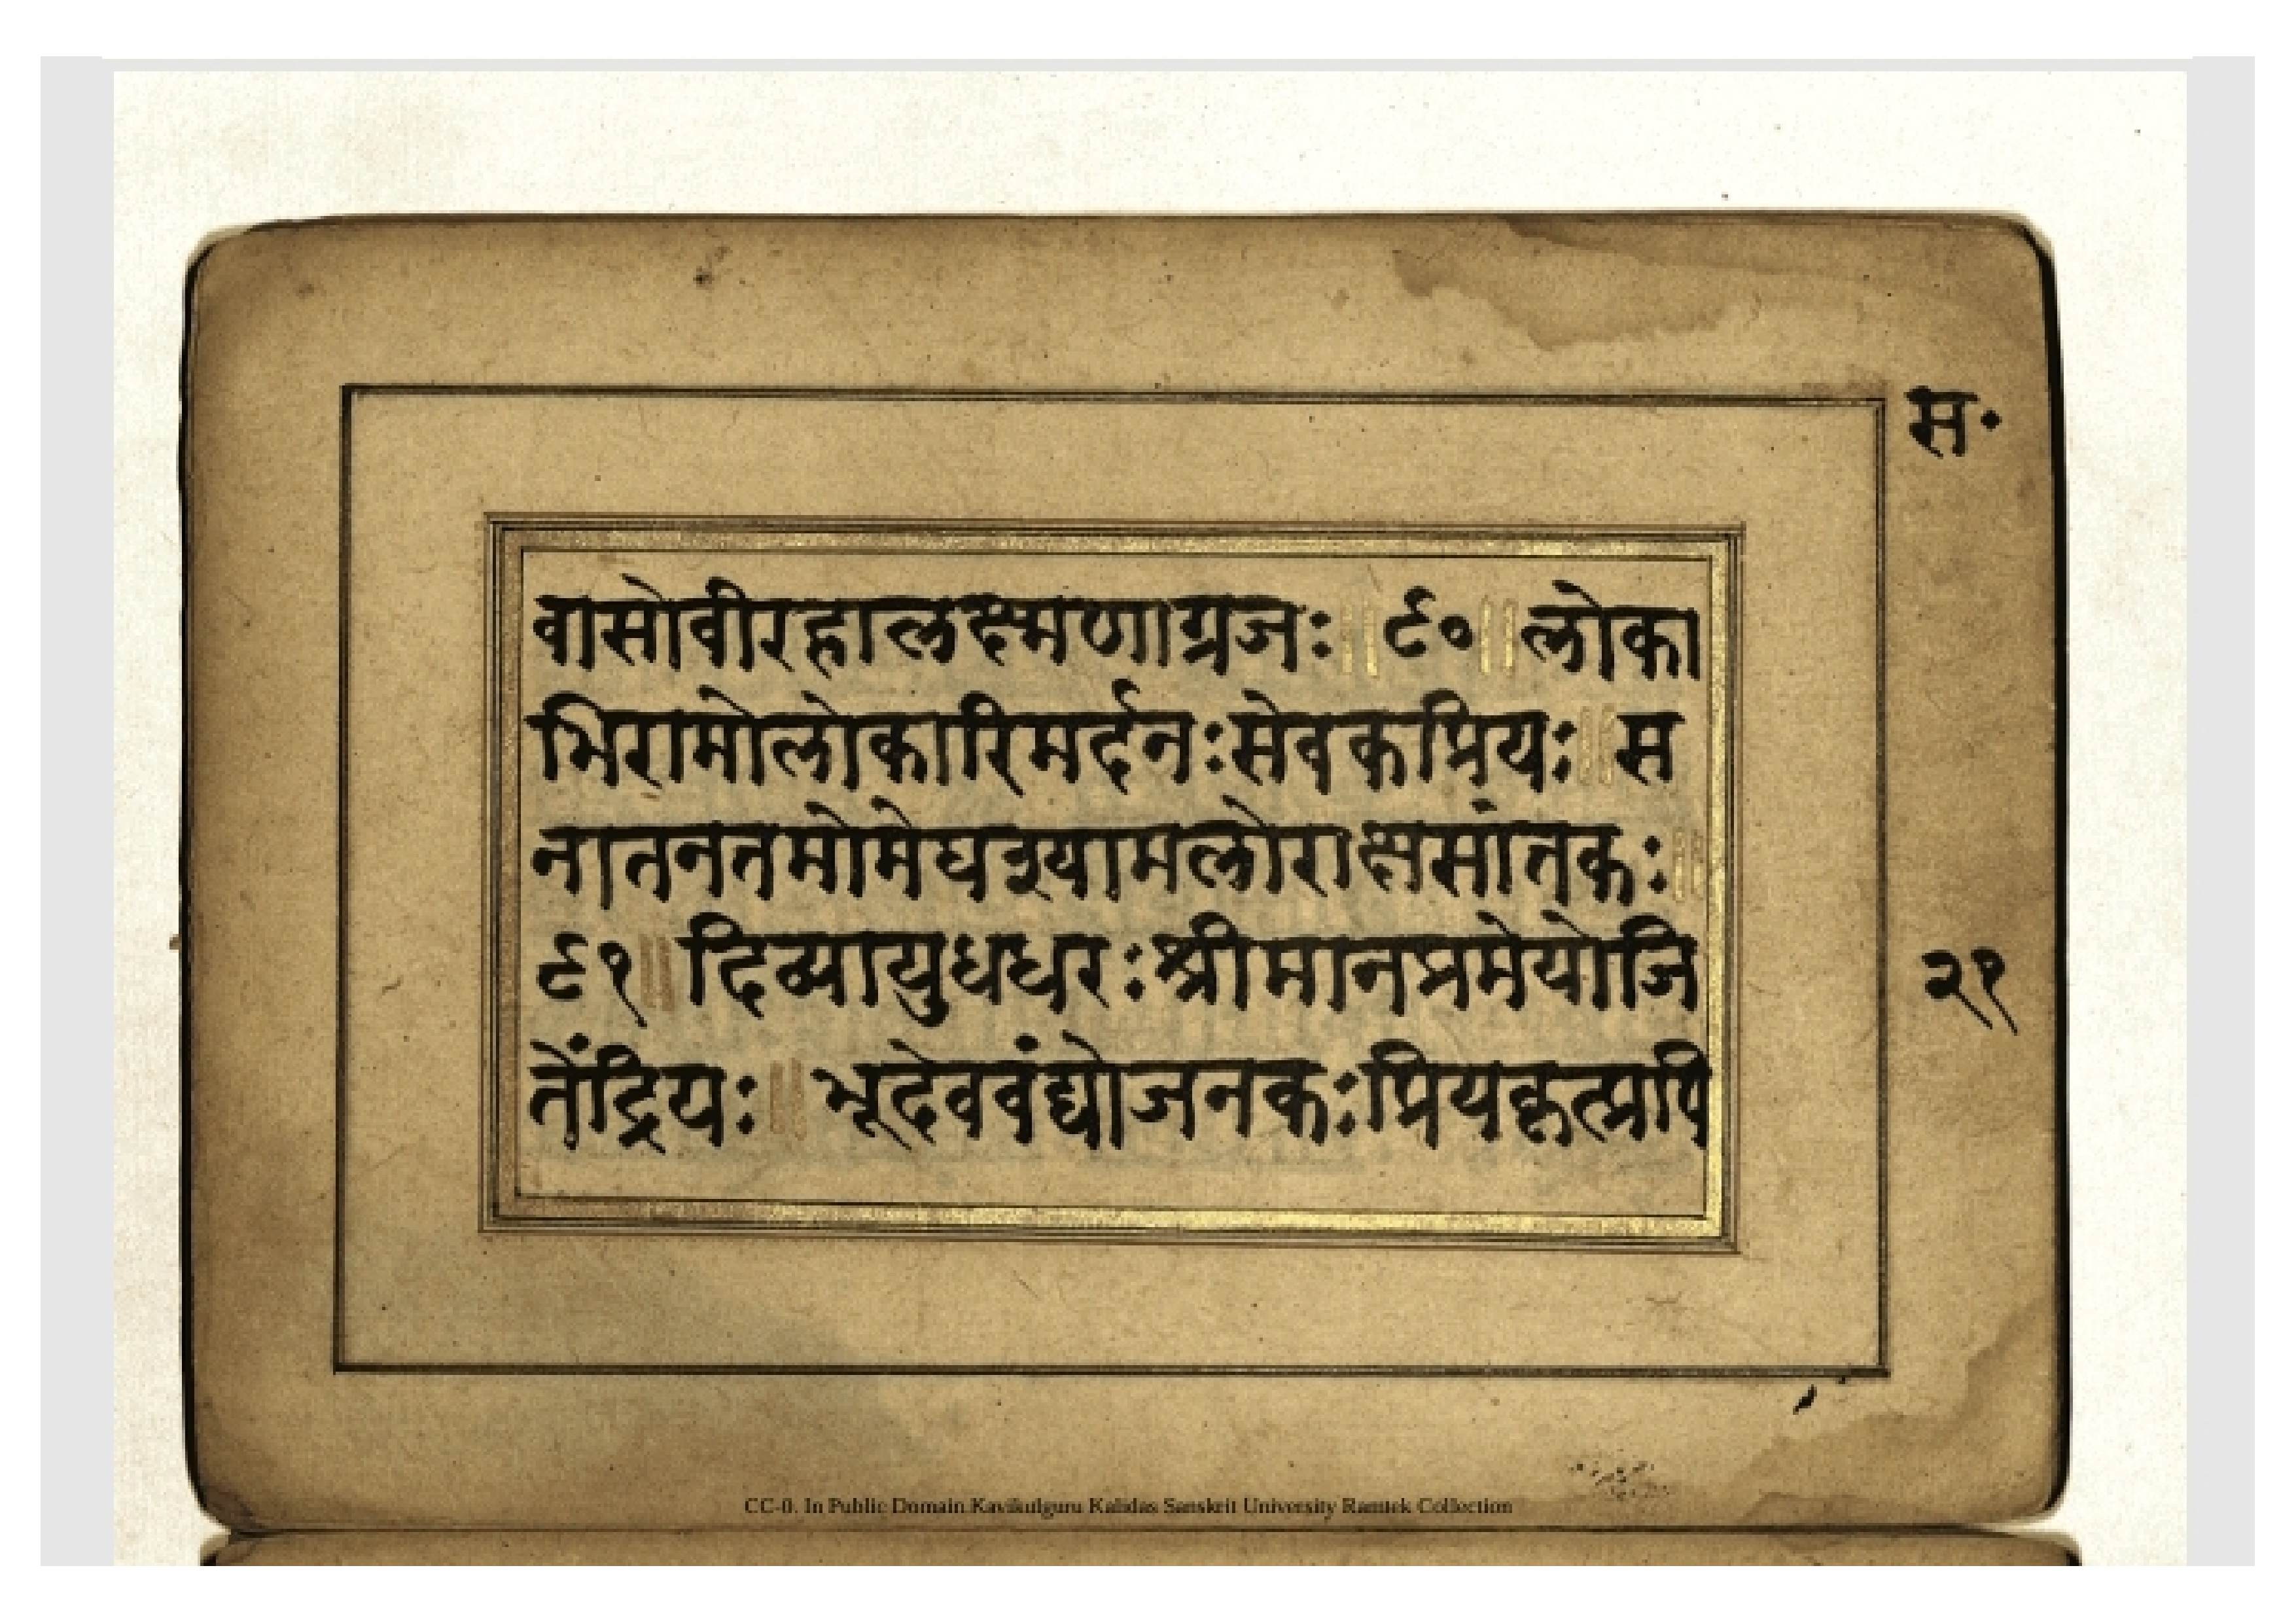 स॰
वासोवीरहालक्ष्मणाग्रजः॥९०॥लोका
भिरामोलोकारिमर्दनःसेवकप्रियः॥स
नातनतमोमेघश्यामलोराक्षसांतकः॥
९१॥दिव्यायुधधरःश्रीमानप्रमेयोजि
२१
तेंद्रियः॥भूदेववंद्योजनकःप्रियकृत्प्रपि
CC-0. In Public Domain Kavikulguru Kalidas Sanskrit University Ramtek Collection